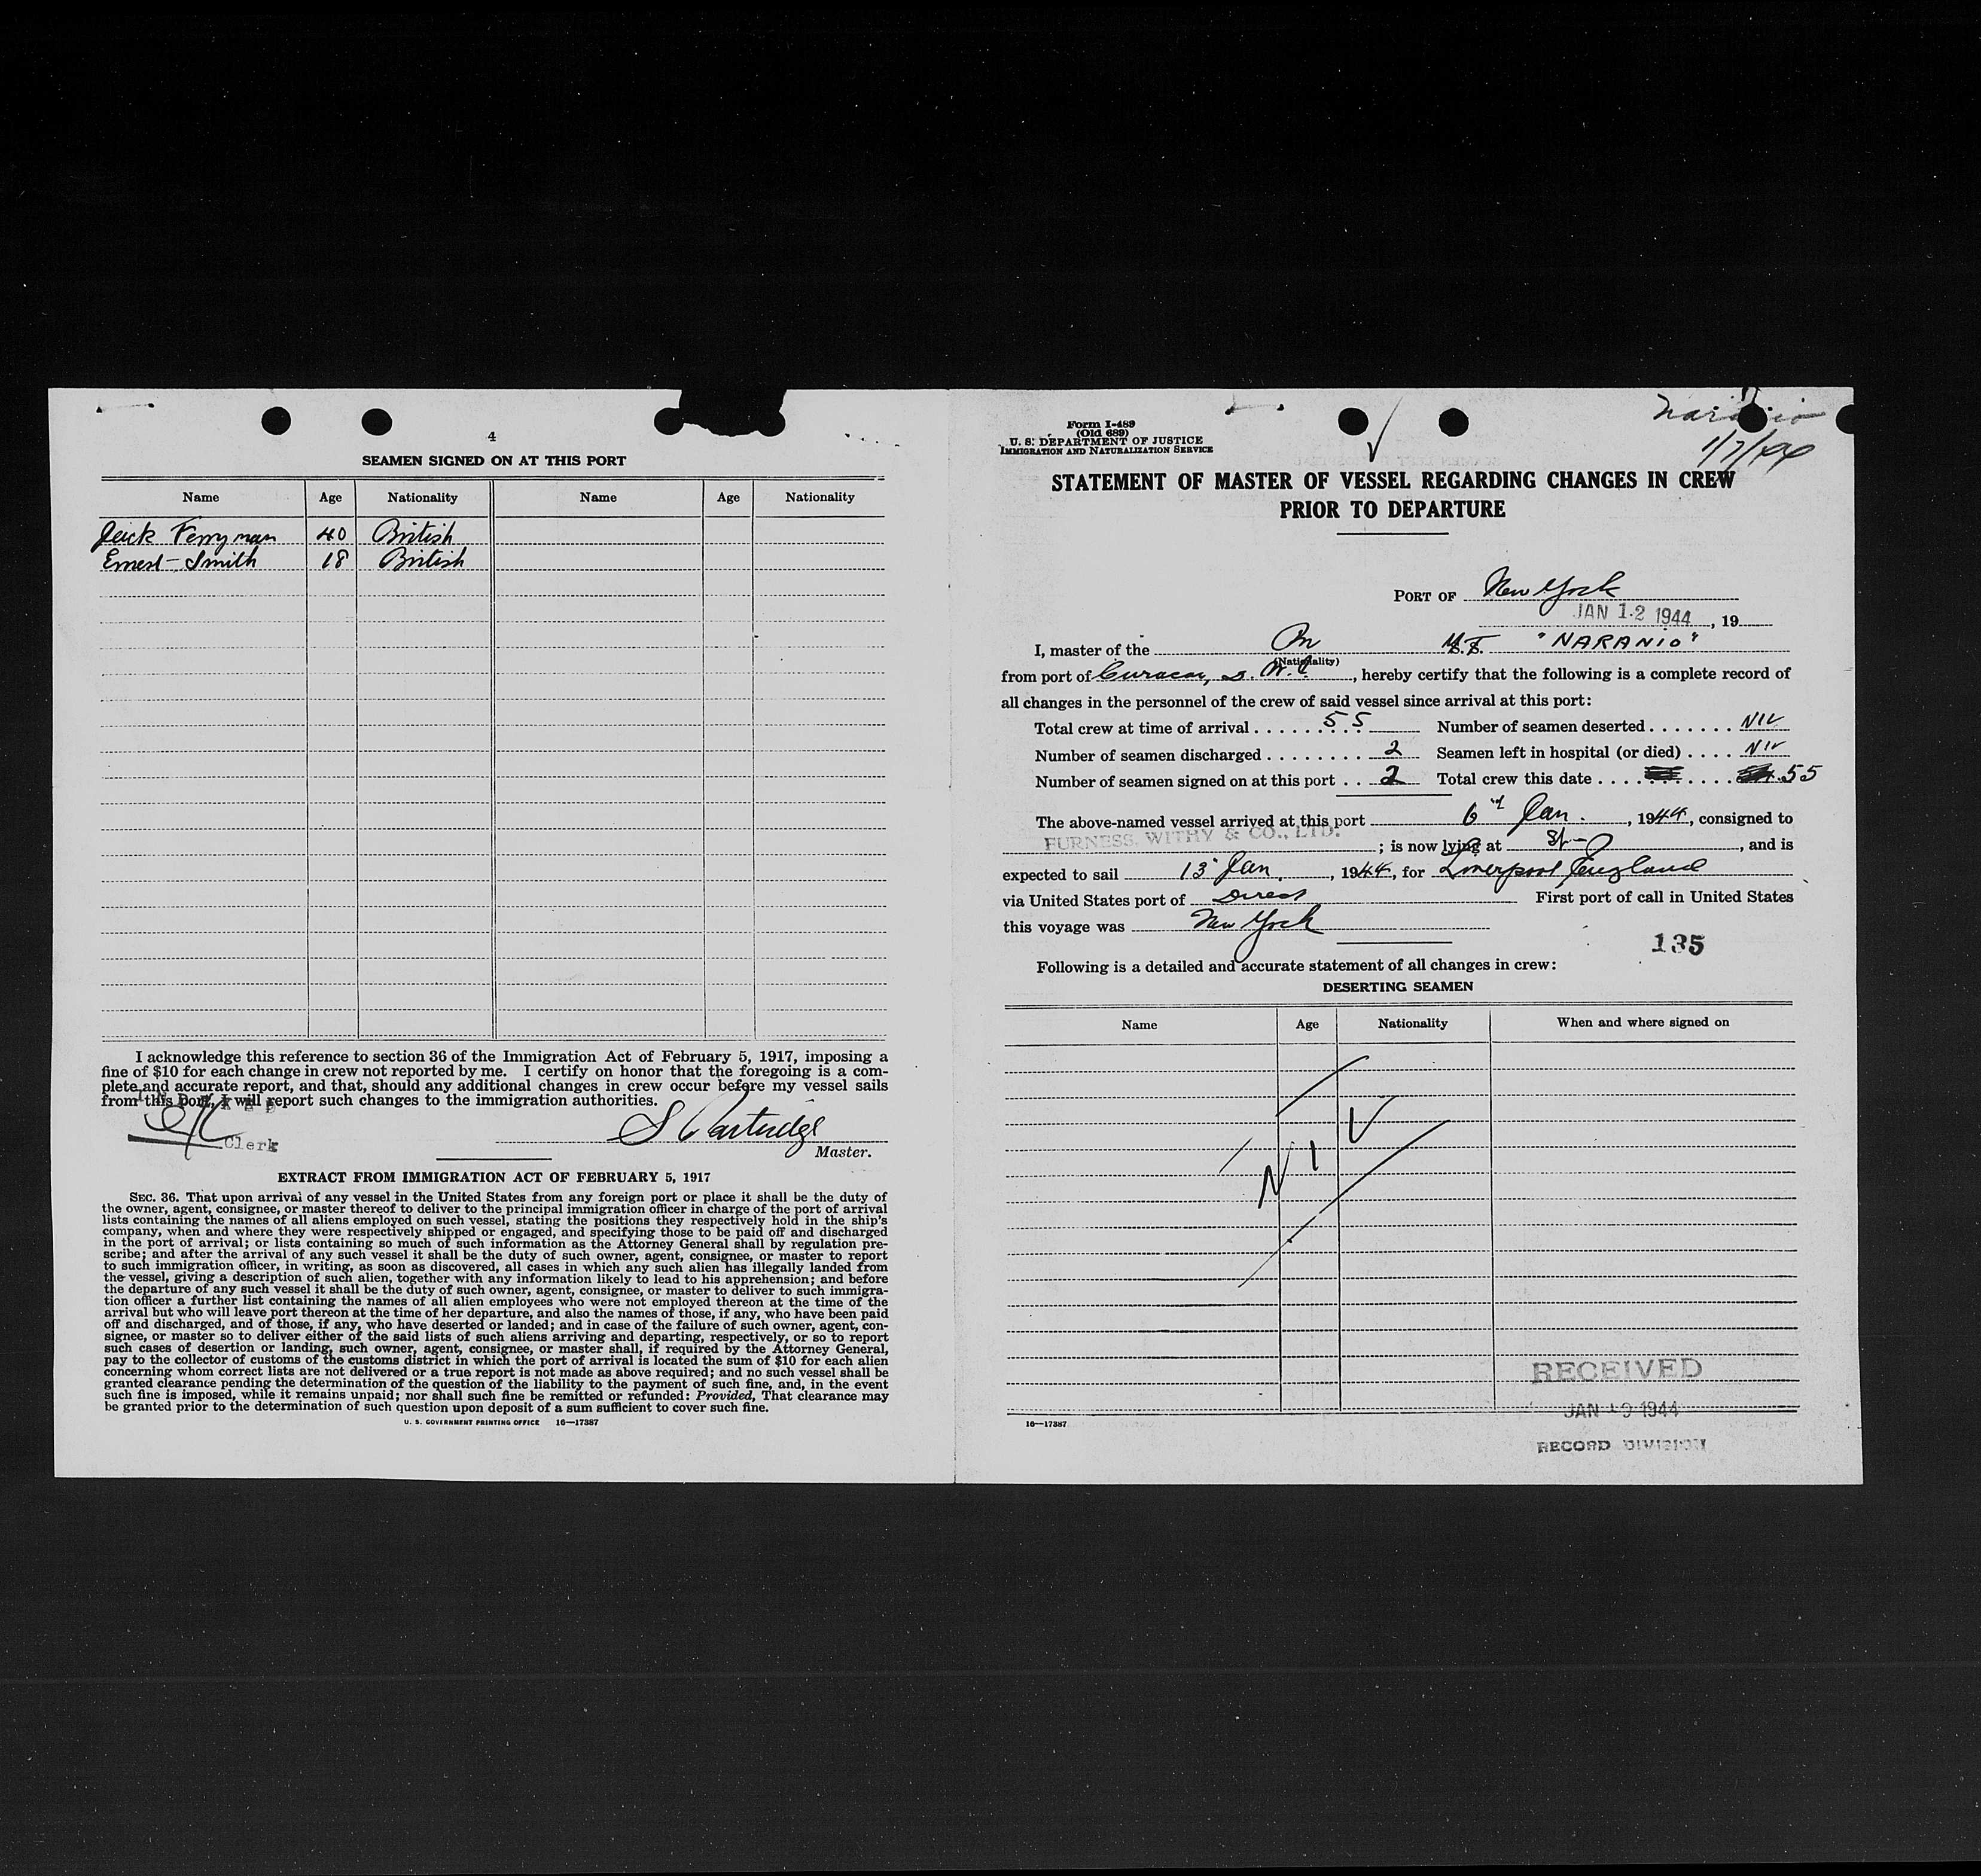 4
SEAMEN SIGNED ON AT THIS PORT
Name Age Nationality Name Age Nationality
Jack Ferryman 40 British
Ernest Smith 18 British
I acknowledge this reference to section 36 of the Immigration Act of February 5, 1917, imposing a
fine of $10 for each change in crew not reported by me. I certify on honor that the foregoing is a com-
plete and accurate report, and that, should any additional changes in crew occur before my vessel sails
from this port, I will report such changes to the immigration authorities.
Clerk
S Partridge
Master.
EXTRACT FROM IMMIGRATION ACT OF FEBRUARY 5, 1917
SEC. 36. That upon arrival of any vessel in the United States from any foreign port or place it shall be the duty of
the owner, agent, consignee, or master thereof to deliver to the principal immigration officer in charge of the port of arrival
lists containing the names of all aliens employed on such vessel, stating the positions they respectively hold in the ship's
company, when and where they were respectively shipped or engaged, and specifying those to be paid off and discharged
in the port of arrival; or lists containing so much of such information as the Attorney General shall by regulation pre-
scribe; and after the arrival of any such vessel it shall be the duty of such owner, agent, consignee, or master to report
to such immigration officer, in writing, as soon as discovered, all cases in which any such alien has illegally landed from
the vessel, giving a description of such alien, together with any information likely to lead to his apprehension; and before
the departure of any such vessel it shall be the duty of such owner, agent, consignee, or master to deliver to such immigra-
tion officer a further list containing the names of all alien employees who were not employed thereon at the time of the
arrival but who will leave port thereon at the time of her departure, and also the names of those, if any, who have been paid
off and discharged, and of those, if any, who have deserted or landed; and in case of the failure of such owner, agent, con-
signee, or master so to deliver either of the said lists of such aliens arriving and departing, respectively, or so to report
such cases of desertion or landing, such owner, agent, consignee, or master shall, if required by the Attorney General,
pay to the collector of customs of the customs district in which the port of arrival is located the sum of $10 for each alien
concerning whom correct lists are not delivered or a true report is not made as above required; and no such vessel shall be
granted clearance pending the determination of the question of the liability to the payment of such fine, and, in the event
such fine is imposed, while it remains unpaid; nor shall such fine be remitted or refunded: Provided, That clearance may
be granted prior to the determination of such question upon deposit of a sum sufficient to cover such fine.
U. S. GOVERNMENT PRINTING OFFICE 16—17387
Form I-489
(Old 689)
U. S. DEPARTMENT OF JUSTICE
IMMIGRATION AND NATURALIZATION SERVICE
1/7/44
STATEMENT OF MASTER OF VESSEL REGARDING CHANGES IN CREW
PRIOR TO DEPARTURE
PORT OF New York
JAN 12 1944, 19
I, master of the Br "NARANIO"
(Nationality)
from port of Curacao, D. W. I., hereby certify that the following is a complete record of
all changes in the personnel of the crew of said vessel since arrival at this port:
Total crew at time of arrival 55 Number of seamen deserted NIL
Number of seamen discharged 2 Seamen left in hospital (or died) NIL
Number of seamen signed on at this port 2 Total crew this date 55
The above-named vessel arrived at this port 6th Jan., 1944, consigned to
FURNESS, WITHY & CO., LTD. ; is now lying at , and is
expected to sail 13 Jan., 1944, for Liverpool England
via United States port of Direct First port of call in United States
this voyage was New York
135
Following is a detailed and accurate statement of all changes in crew:
DESERTING SEAMEN
Name Age Nationality When and where signed on
NIL
RECEIVED
JAN 1944
RECORD DIVISION
16—17387